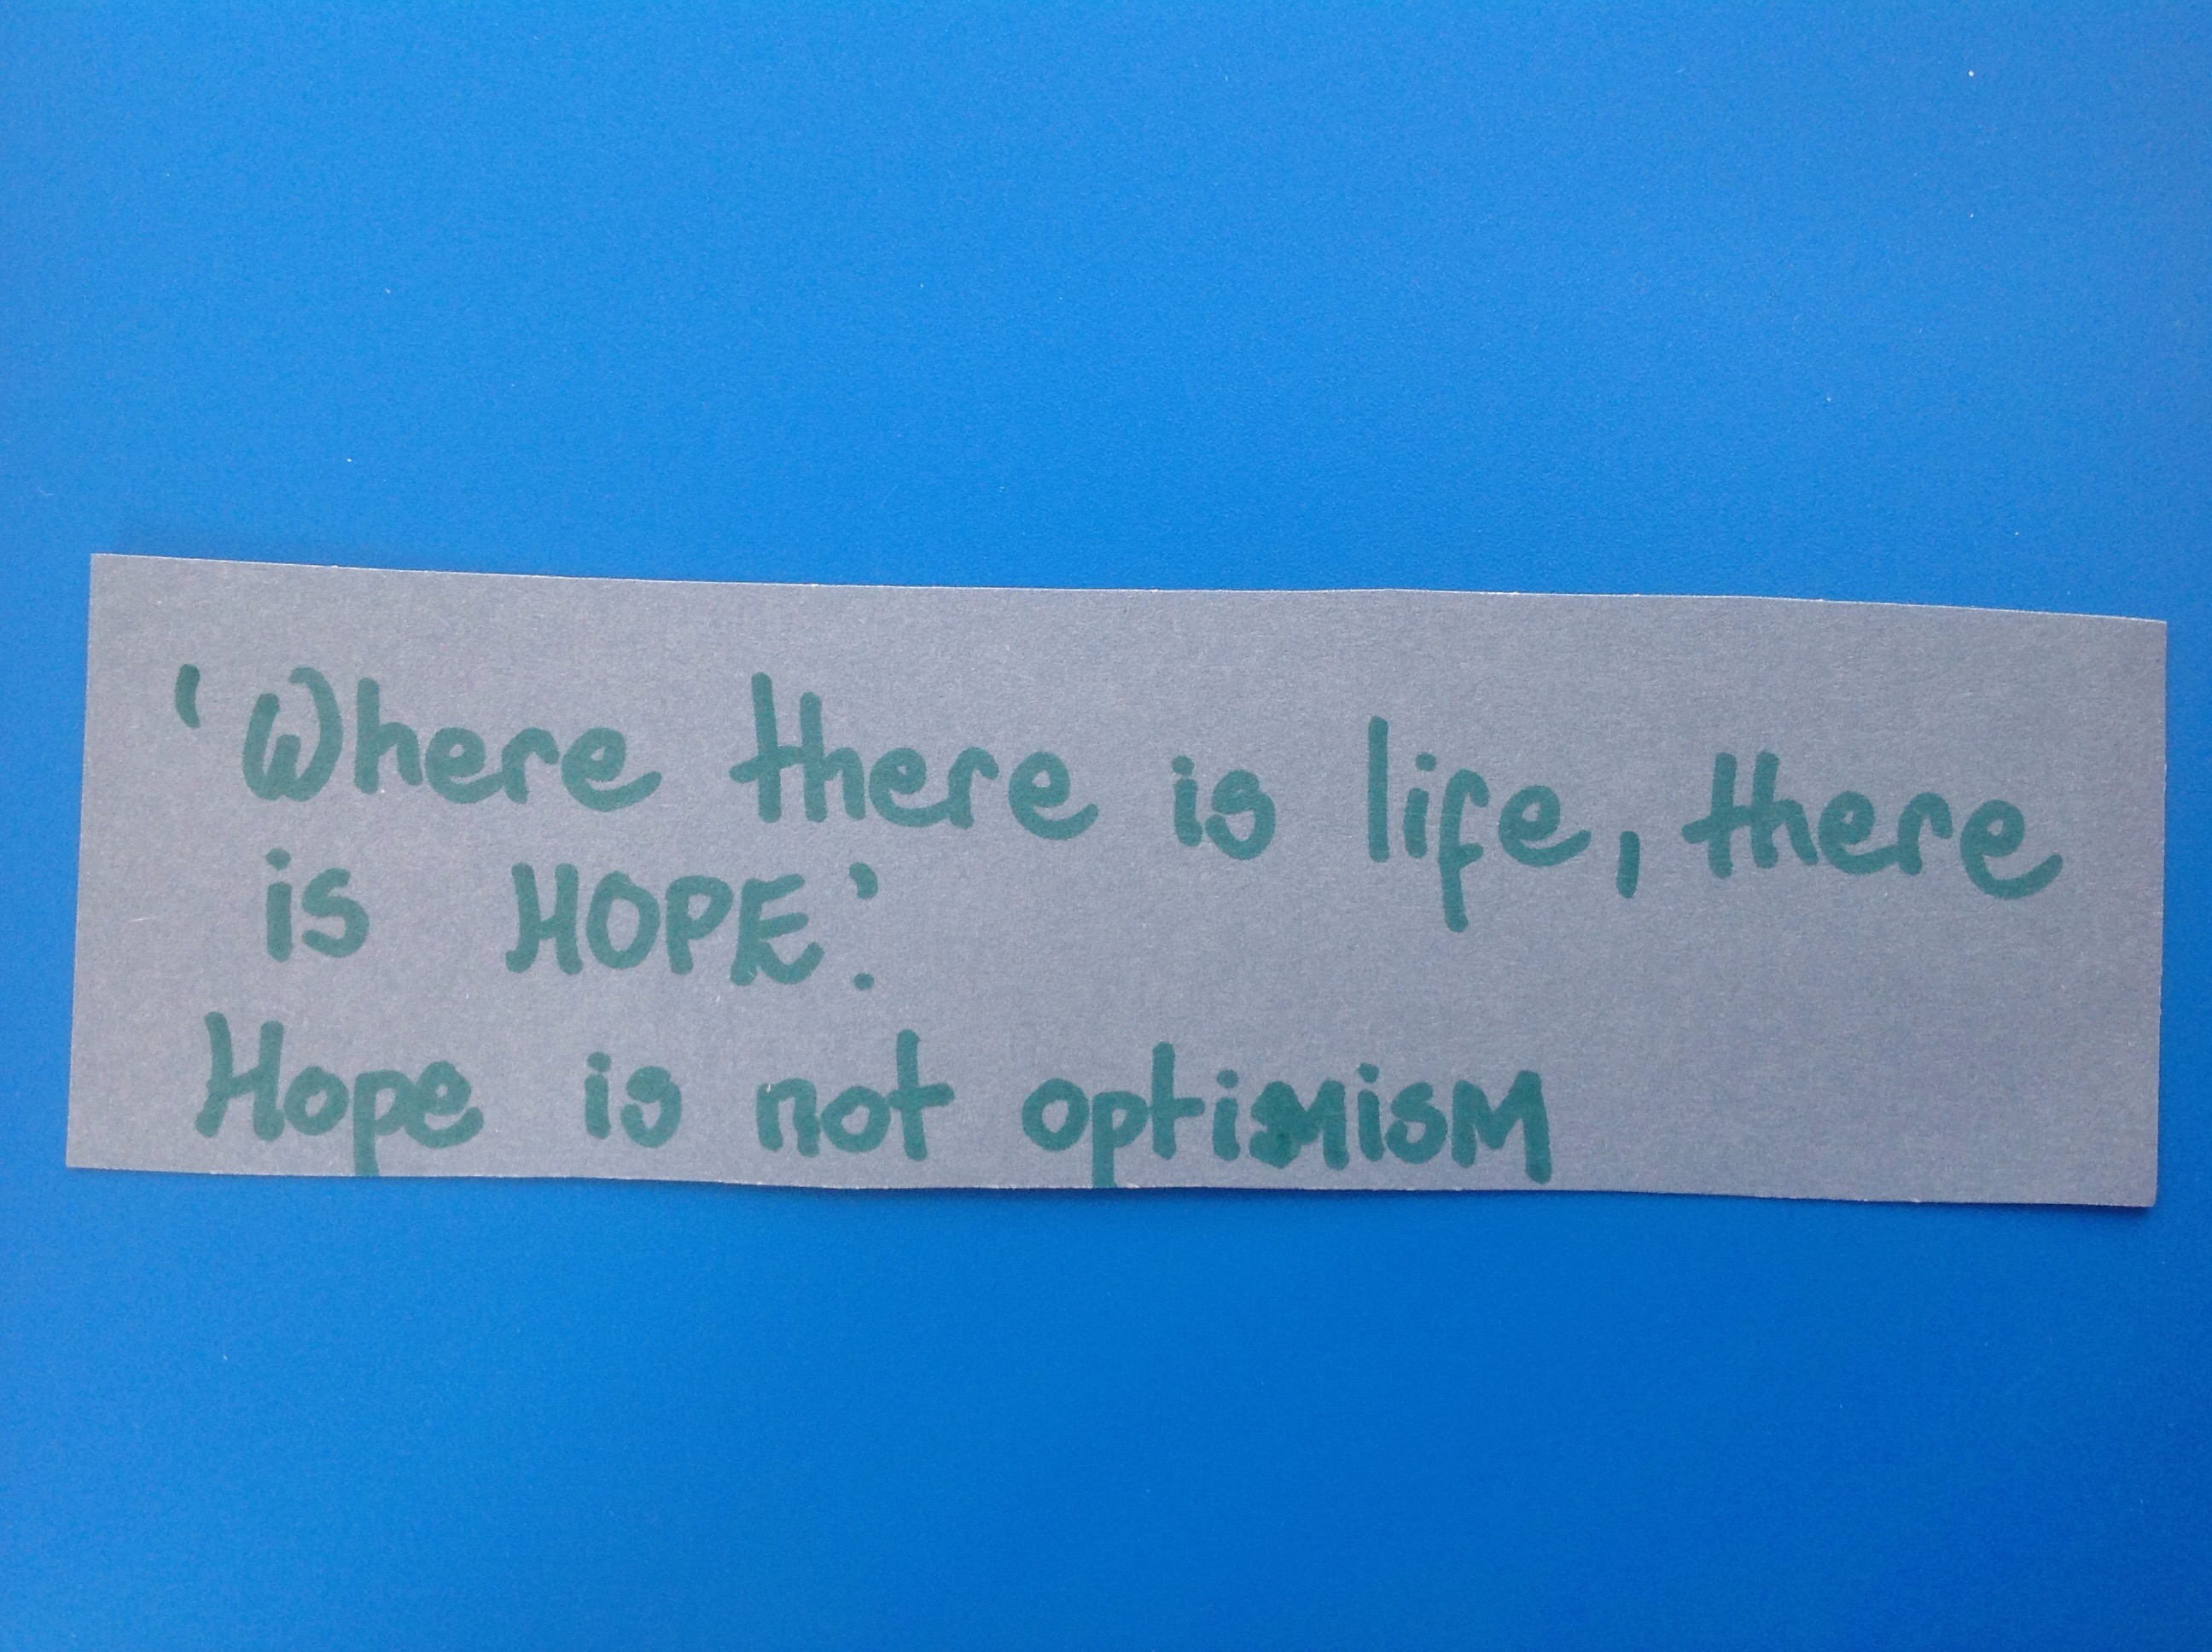 'Where there is life, there
is HOPE.'
Hope is not optimism